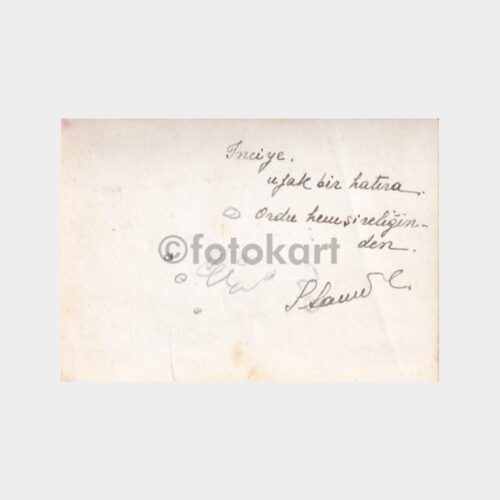 İnciye.
ufak bir hatıra.
Ordu hemşireliğin-
den.
©fotokart